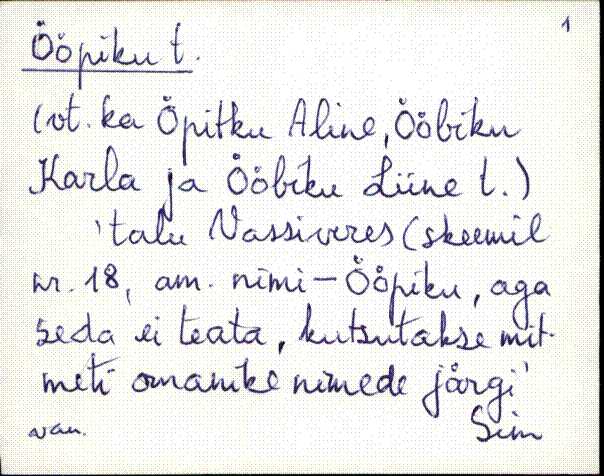 1
Ööpiku t.
(vt. ka Öpitku Aline, Ööbiku
Karla ja Ööbiku Liine t.)
'talu Vassiveres (skeemil
nr. 18, am. nimi – Ööpiku, aga
seda ei teata, kutsutakse mit-
meti omanike nimede järgi'
van. Sim